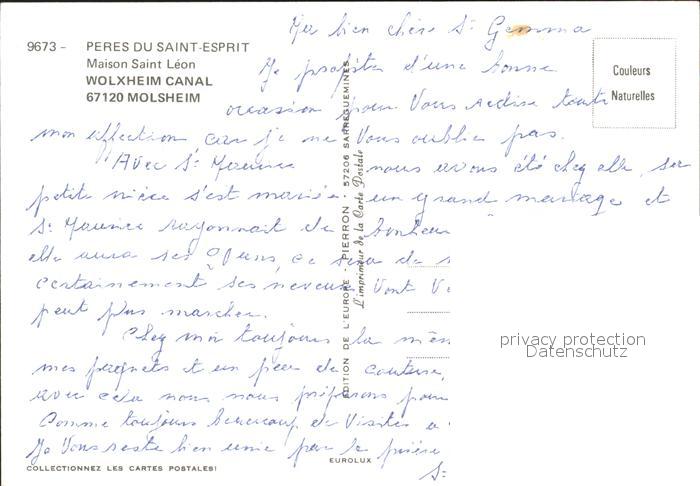 Ma bien chère Sr Gemma
9673 - PERES DU SAINT-ESPRIT
Maison Saint Léon
WOLXHEIM CANAL
67120 MOLSHEIM
Couleurs
Naturelles
Je profite d'une bonne
occasion pour Vous redire toute
mon affection car je ne Vous oublie pas.
Avec Sr Maurice nous avons été chez elle, sa
petite nièce s'est mariée. un grand mariage et
Sr Maurice rayonnait de bonheur
elle aura ses ce sera de
certainement ses neveux Vont
peut plus marcher.
Chez moi toujours la mêm
mes paquets et un peu de couture,
avec cela nous nous préparons pour
Comme toujours beaucoup de Visites
Je Vous reste bien unie par la prière
Sr
EDITION DE L'EUROPE · PIERRON · 57206 SARREGUEMINES
L'imprimeur de la Carte Postale
privacy protection
Datenschutz
EUROLUX
COLLECTIONNEZ LES CARTES POSTALES!